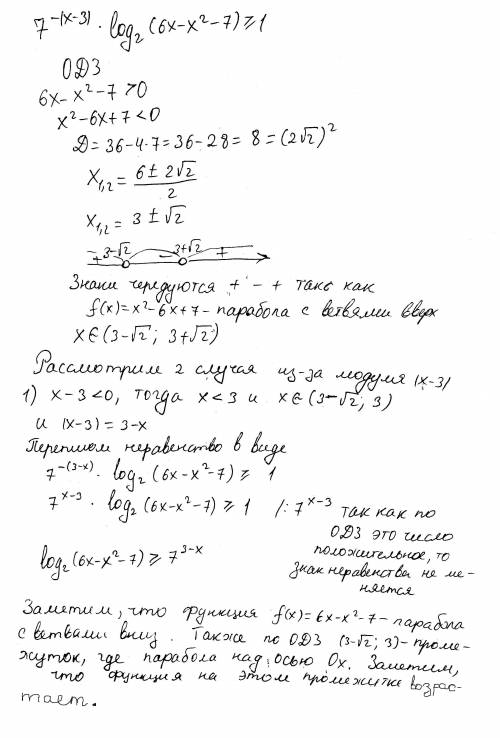 7^{-|x-3|} · log₂(6x-x²-7) ≥ 1
ОДЗ
6x-x²-7 > 0
x²-6x+7 < 0
Д = 36-4·7 = 36-28 = 8 = (2√2)²
x₁,₂ = (6 ± 2√2)/2
x₁,₂ = 3 ± √2
+ 3-√2 - 3+√2 +
Знаки чередуются + - + так как
f(x)=x²-6x+7 - парабола с ветвями вверх
x∈(3-√2; 3+√2)
Рассмотрим 2 случая из-за модуля |x-3|
1) x-3<0, тогда x<3 и x∈(3-√2; 3)
и |x-3| = 3-x
Перепишем неравенство в виде
7^{-(3-x)} · log₂(6x-x²-7) ≥ 1
7^{x-3} · log₂(6x-x²-7) ≥ 1 /: 7^{x-3} так как по
ОДЗ это число
положительное, то
знак неравенства не ме-
няется
log₂(6x-x²-7) ≥ 7^{3-x}
Заметим, что функция f(x)=6x-x²-7 - парабола
с ветвами вниз. Также по ОДЗ (3-√2; 3) - проме-
жуток, где парабола над осью Ox. Заметим,
что функция на этом промежутке возрас-
тает.